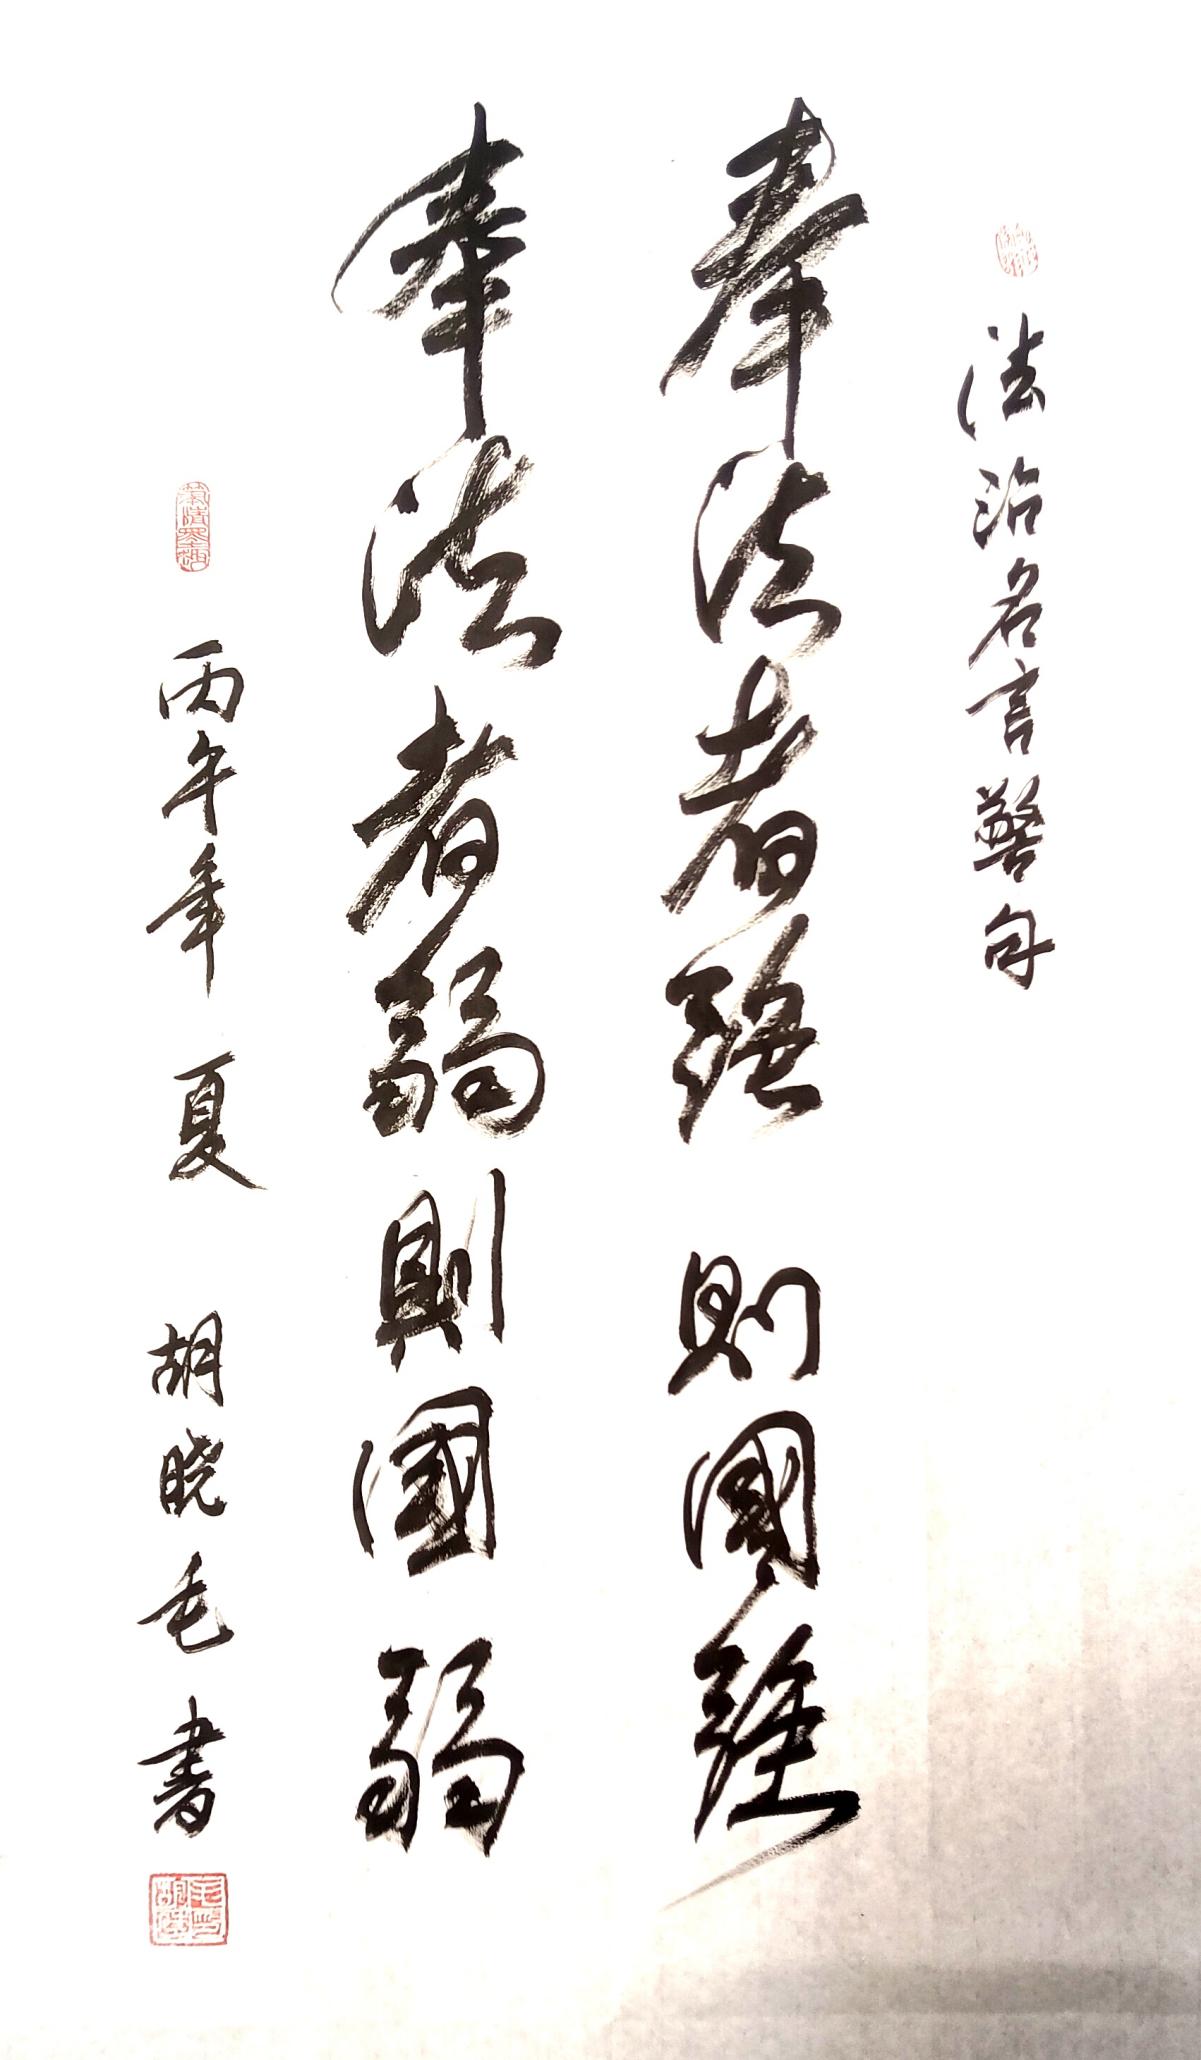 法治名言警句
奉法者強則國強
奉法者弱則國弱
丙午年夏胡晓毛書